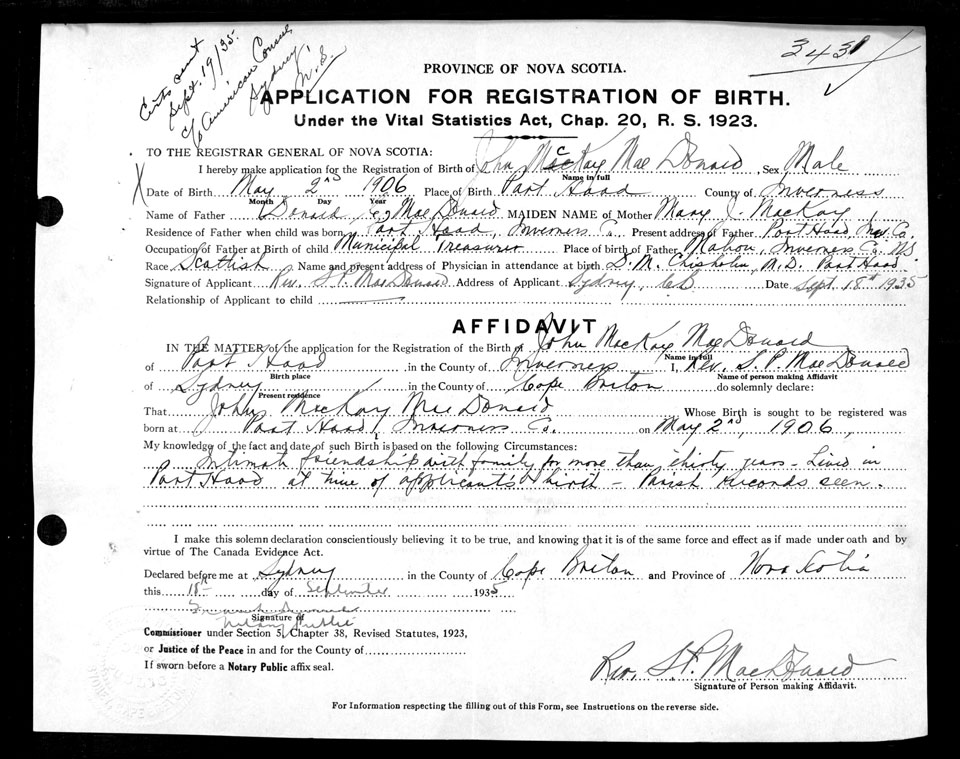 Certs sent
Sept. 19/35.
c/o American Consul
Sydney,
N. S.
3431
PROVINCE OF NOVA SCOTIA.
APPLICATION FOR REGISTRATION OF BIRTH.
Under the Vital Statistics Act, Chap. 20, R. S. 1923.
TO THE REGISTRAR GENERAL OF NOVA SCOTIA:
I hereby make application for the Registration of Birth of John MacKay MacDonald Sex Male
Name in full
X Date of Birth May 2nd 1906 Place of Birth Port Hood County of Inverness
Month Day Year
Name of Father Donald MacDonald MAIDEN NAME of Mother Mary J. MacKay
Residence of Father when child was born Port Hood, Inverness Co. Present address of Father Port Hood, Inv. Co.
Occupation of Father at Birth of child Municipal Treasurer Place of birth of Father Mabou, Inverness Co. N.S.
Race Scottish Name and present address of Physician in attendance at birth D. M. Chisholm, M.D. Port Hood
Signature of Applicant Rev. MacDonald Address of Applicant Sydney, C.B. Date Sept. 18th 1935
Relationship of Applicant to child
AFFIDAVIT
IN THE MATTER of the application for the Registration of the Birth of John MacKay MacDonald
Name in full
of Port Hood in the County of Inverness I, Rev. MacDonald
Birth place Name of person making Affidavit
of Sydney in the County of Cape Breton do solemnly declare:
Present residence
That John MacKay MacDonald Whose Birth is sought to be registered was
born at Port Hood, Inverness Co. on May 2nd, 1906,
My knowledge of the fact and date of such Birth is based on the following Circumstances:
Intimate friendship with family for more than thirty years - Lived in
Port Hood at time of applicant's birth - Parish records seen.
I make this solemn declaration conscientiously believing it to be true, and knowing that it is of the same force and effect as if made under oath and by
virtue of The Canada Evidence Act.
Declared before me at Sydney in the County of Cape Breton and Province of Nova Scotia
this 18th day of September 1935
Signature of
Notary Public
Commissioner under Section 5, Chapter 38, Revised Statutes, 1923,
or Justice of the Peace in and for the County of
If sworn before a Notary Public affix seal.
Rev. MacDonald
Signature of Person making Affidavit.
For Information respecting the filling out of this Form, see Instructions on the reverse side.